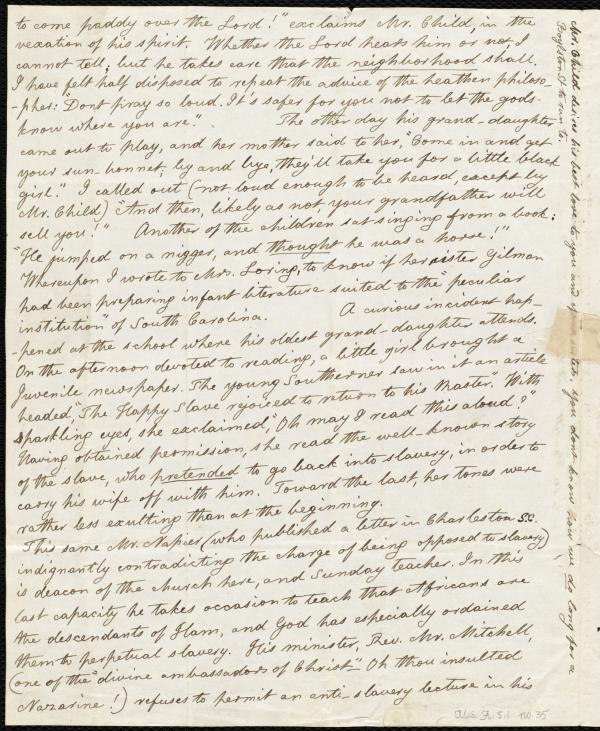 to come paddy over the Lord!" exclaims Mr. Child, in the
vexation of his spirit. Whether the Lord hears him or not, I
cannot tell; but he takes care that the neighborhood shall.
I have felt half disposed to repeat the advice of the heathen philoso-
-pher: "Dont pray so loud. It's safer for you not to let the gods
know where you are." The other day his grand-daughter
came out to play, and her mother said to her, "Come in and get
your sun-bonnet; by and bye, they'll take you for a little black
girl." I called out (not loud enough to be heard, except by
Mr. Child) "And then, likely as not, your grandfather will
sell you!" Another of the children sat singing from a book:
"He jumped on a nigger, and thought he was a horse!"
Whereupon I wrote to Mrs. Loring, to know if her sister Gilman
had been preparing infant literature suited to the "peculiar
institution" of South Carolina. A curious incident hap-
-pened at the school where his oldest grand-daughter attends.
On the afternoon devoted to reading, a little girl brought a
Juvenile newspaper. The young Southerner saw in it an article
headed, "The Happy Slave rejoiced to return to his Master." With
sparkling eyes, she exclaimed, "Oh may I read this aloud?"
Having obtained permission, she read the well-known story
of the slave, who pretended to go back into slavery, in order to
carry his wife off with him. Toward the last, her tones were
rather less exulting than at the beginning.
This same Mr. Napier (who published a letter in Charleston S.C.
indignantly contradicting the charge of being opposed to slavery)
is deacon of the church here, and Sunday teacher. In this
last capacity he takes occasion to teach that Africans are
the descendants of Ham, and God has especially ordained
them to perpetual slavery. His minister, Rev. Mr. Mitchell,
(one of the "divine ambassadors of Christ" Oh thou insulted
Nazarine!) refuses to permit an anti-slavery lecture in his
Mr. Child desires his best love to you and your sister. You dont know how we do long for a
Boylston St. to run to.